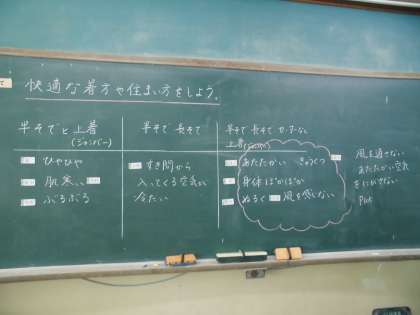 快適な着方や住まい方をしよう。
半そでと上着
(ジャンパー)
ひやひや
肌寒い
ぶるぶる
半そで 長そで
すき間から
入ってくる空気が
冷たい
半そで 長そで カーディガン
上着
あたたかい きゅうくつ
身体ぽかぽか
ぬるく 風を感じない
風を通さない
あたたかい空気
をにがさない